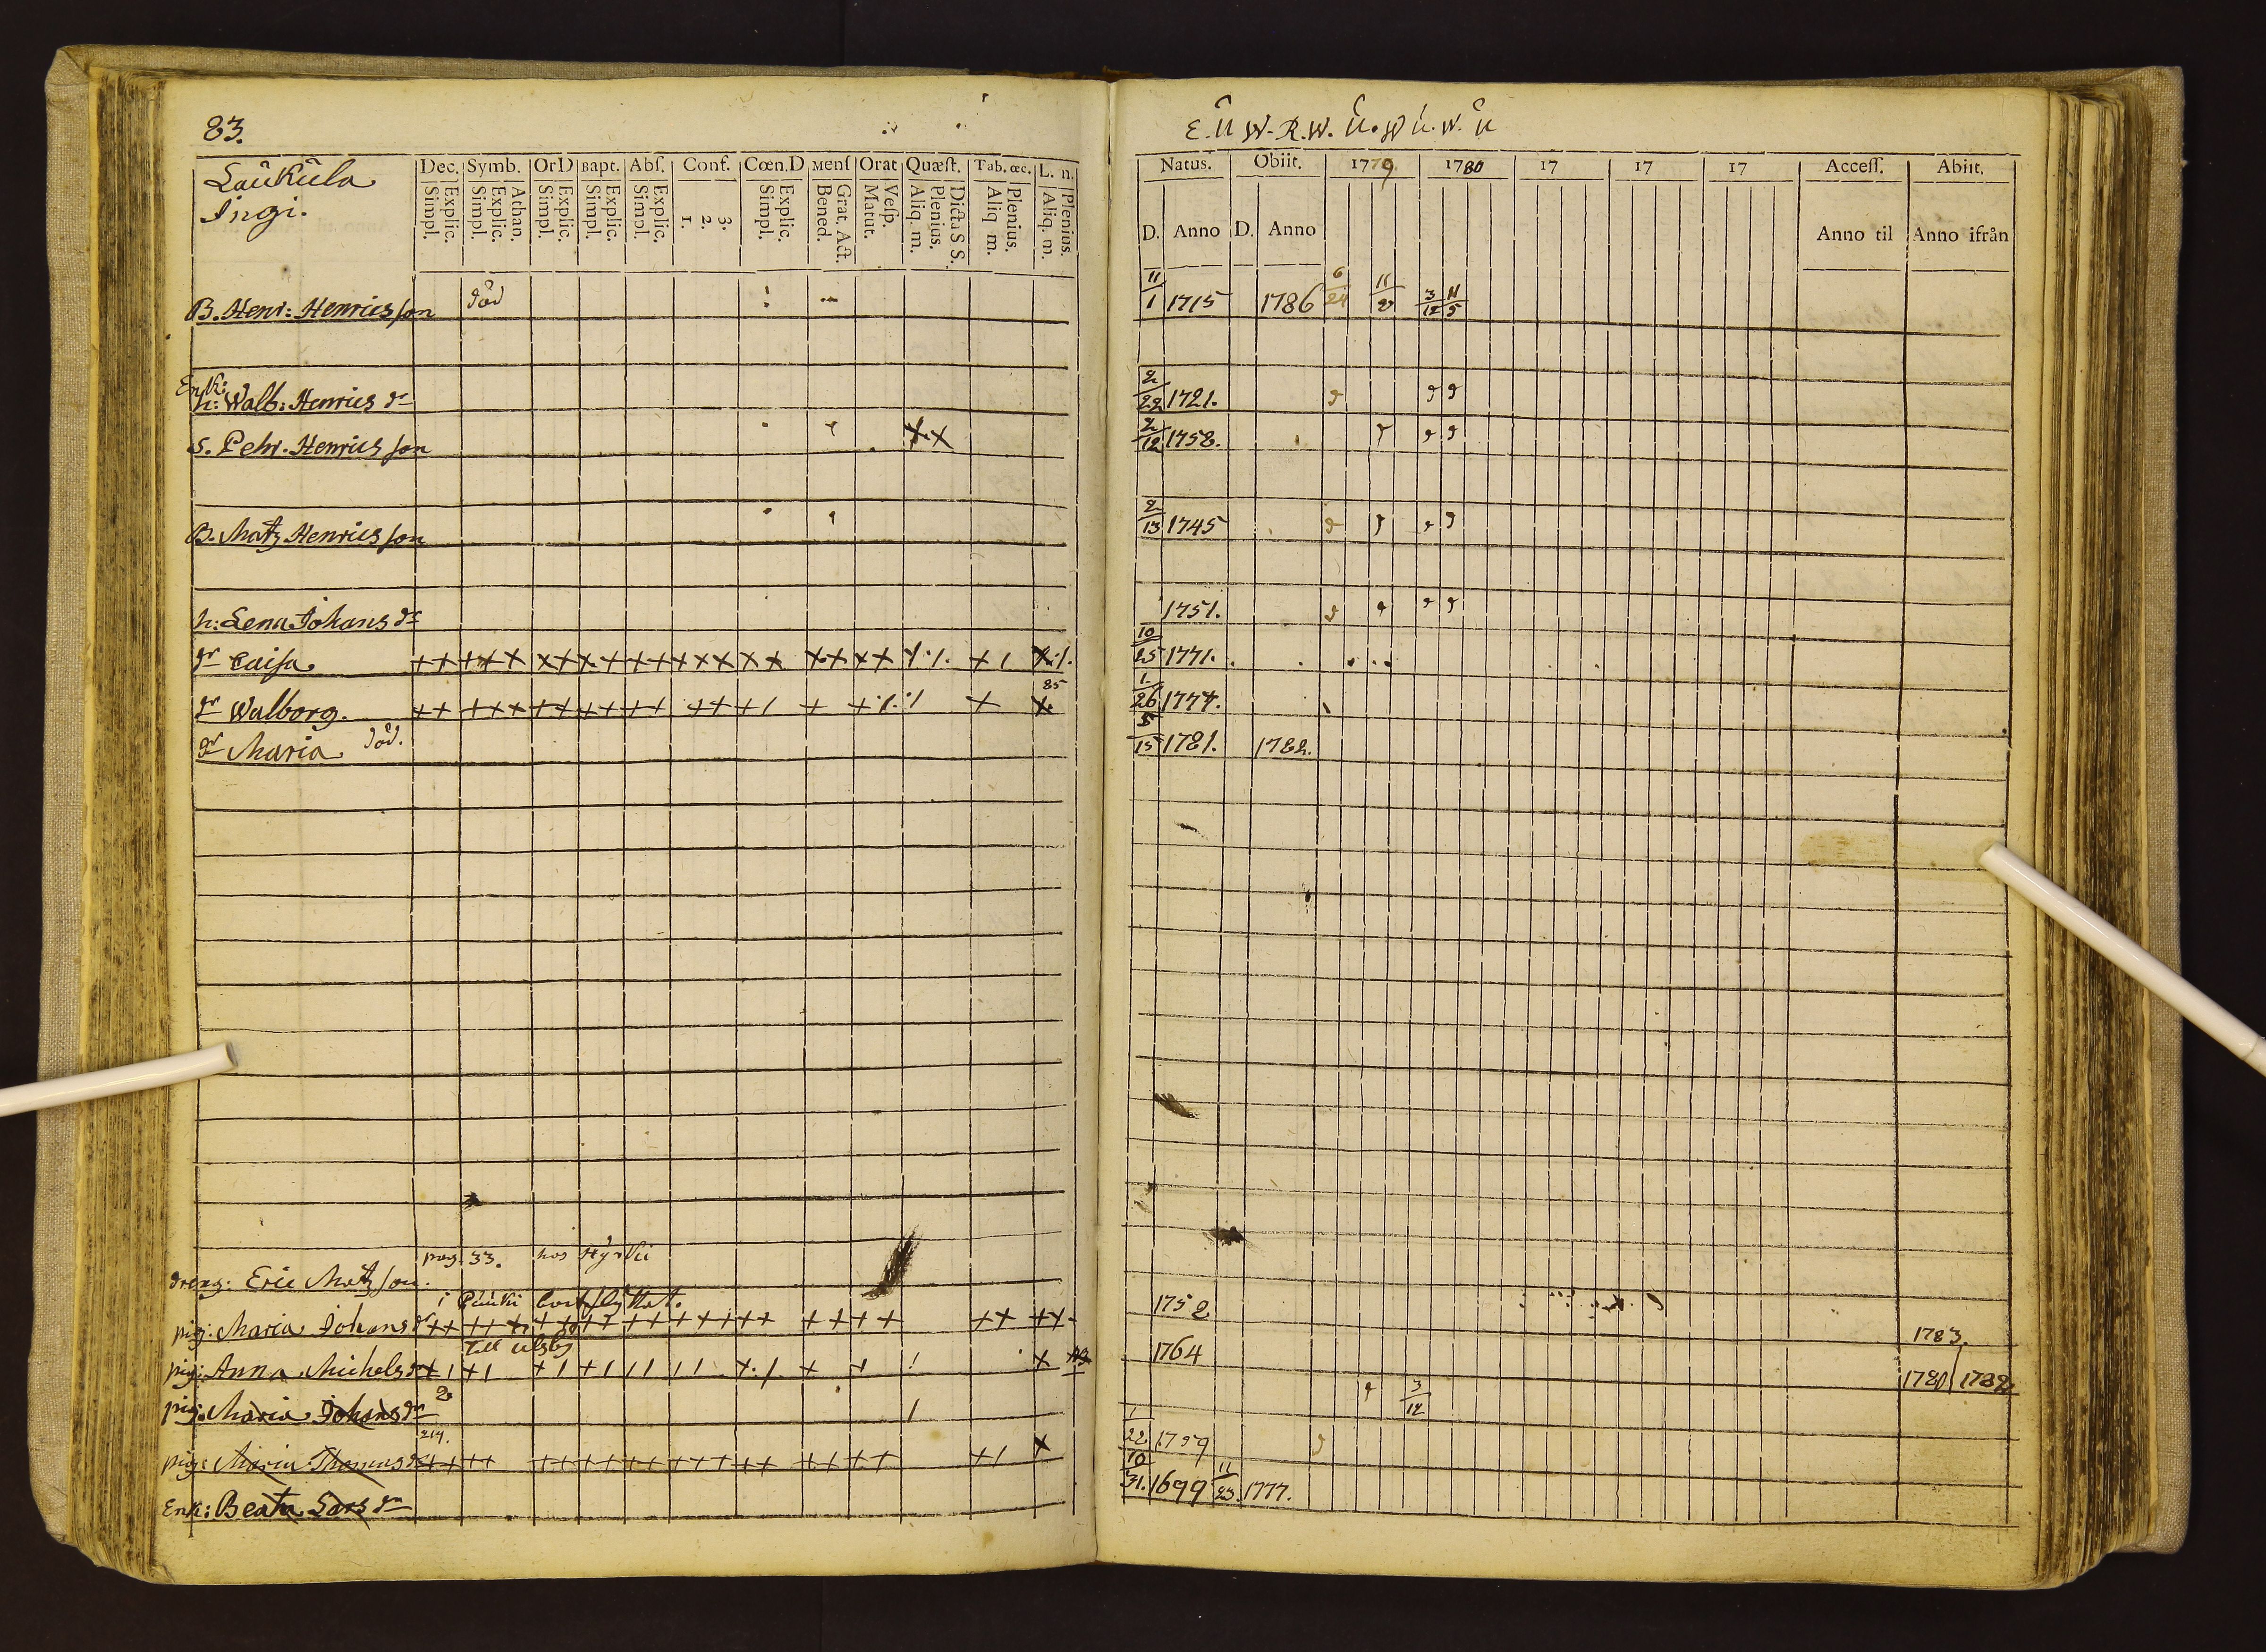 83.
Laukula
Ingi.
Dec. Symb. OrD Bapt. Abſ. Conf. Cœn.D Menſ Orat Quæſt. Tab. œc. L. n.
Simpl. Explic. Simpl. Explic. Athan. Simpl. Explic. Simpl. Explic. Simpl. Explic. 1. 2. 3. Simpl. Explic. Bened. Grat. Act. Matut. Veſp. Aliq. m. Plenius. Dicta S S. Aliq m. Plenius. Aliq. m. Plenius.
B. Henr: Henrics son död
Enk:
h: Walb: Henrics dr
S. Pehr. Henrics son
B. Matz Henrics son
h: Lena Johans dr
dr Caisa
dr Walborg. 85
dr Maria död.
pag. 33. hos Hyrkii
dreng: Eric Matz son.
i Púúki bortflyttat.
pig: Maria Johans dr
till Ulsby
pig: Anna Michels dr
pig: Maria Johans dr 2
214.
pig: Maria Thomas dr
Enk: Beata Lars dr
Natus. Obiit. 1779 1780 17 17 17 Acceſſ. Abiit.
D. Anno D. Anno Anno til Anno ifrån
11/1 1715 1786 6/24 11/27 3/12 11/5
2/22 1721.
2/12 1758.
2/13 1745
1751.
10/25 1771.
1/26 1777.
5/15 1781. 1782.
1752 1783.
1764 1780 1782
3/12
1/22 1759
10/31. 1699 11/23. 1777.